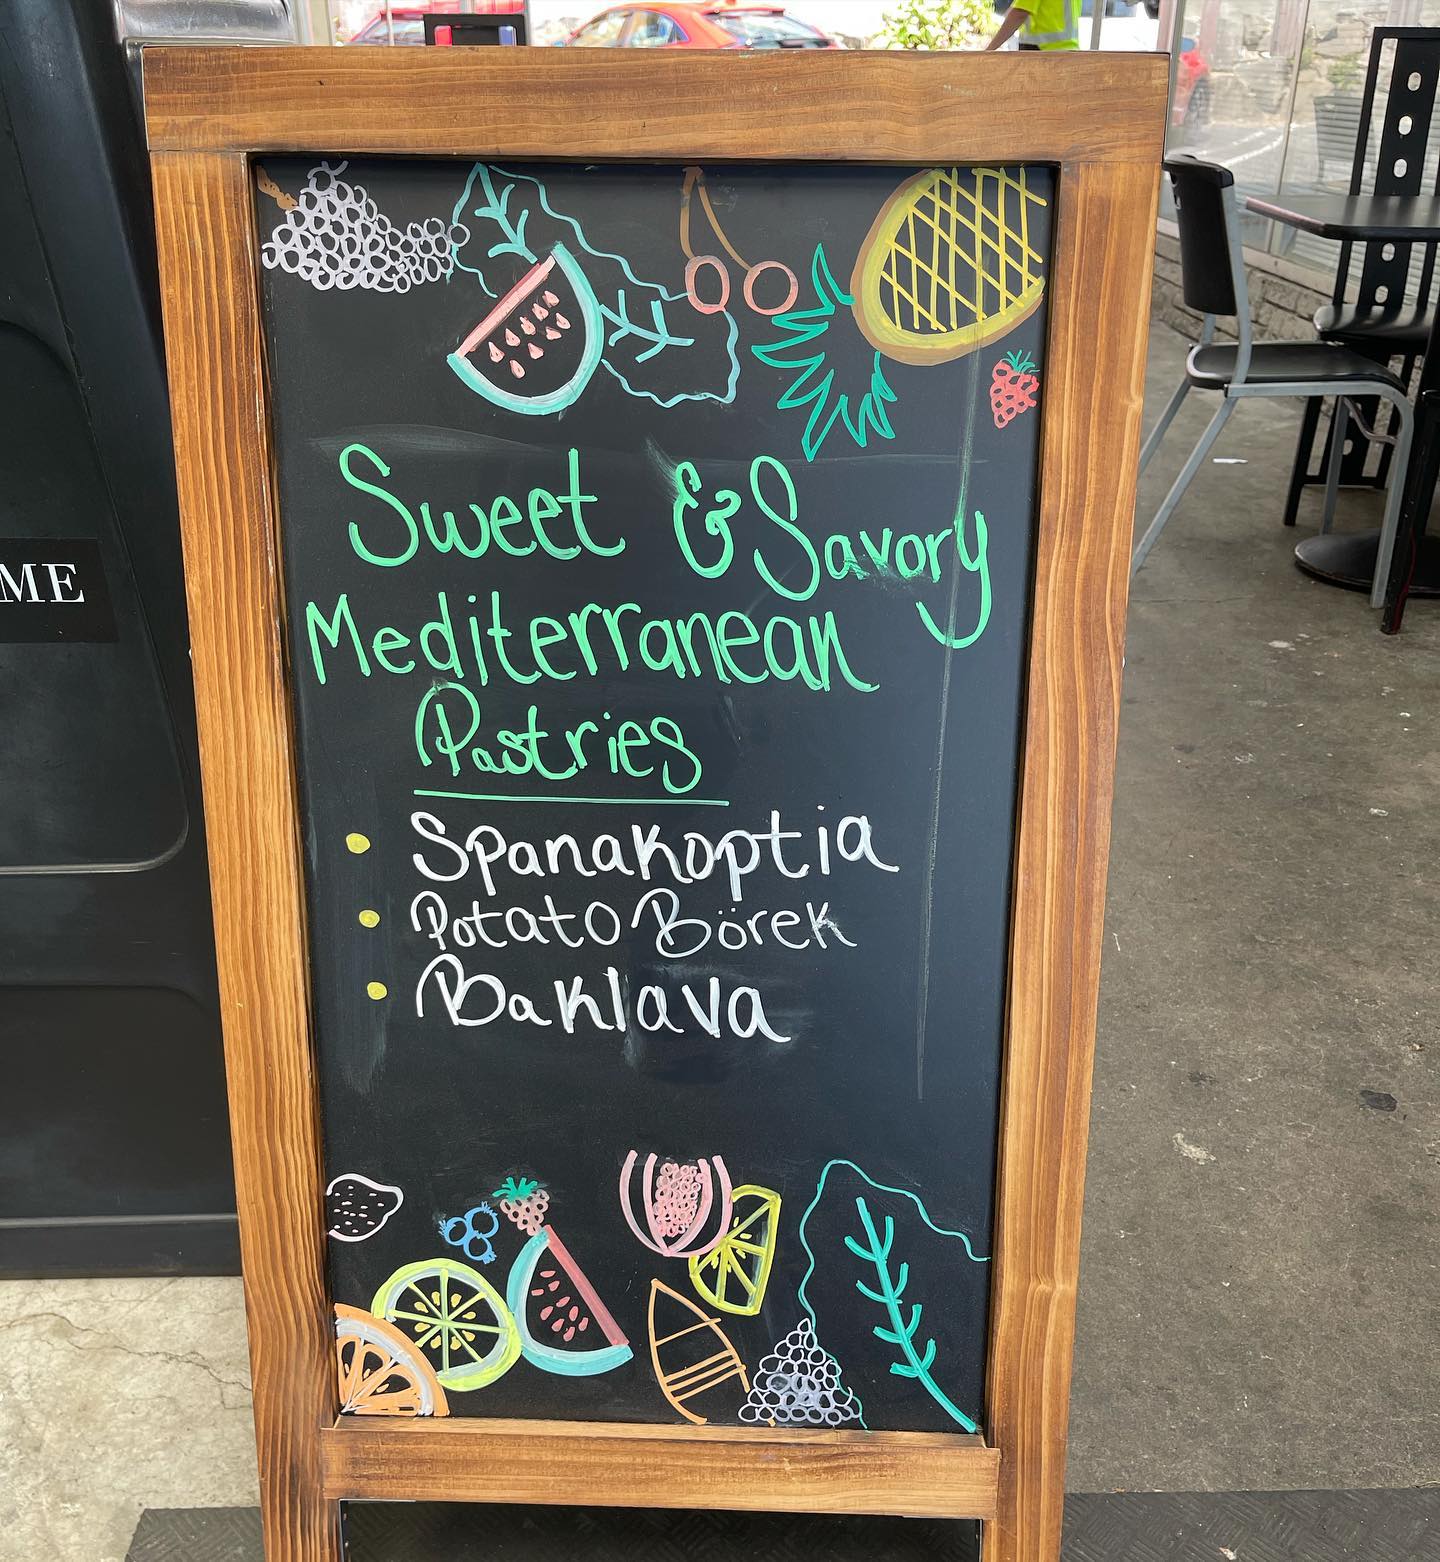 ME
Sweet & Savory
Mediterranean
Pastries
Spanakoptia
Potato Börek
Baklava